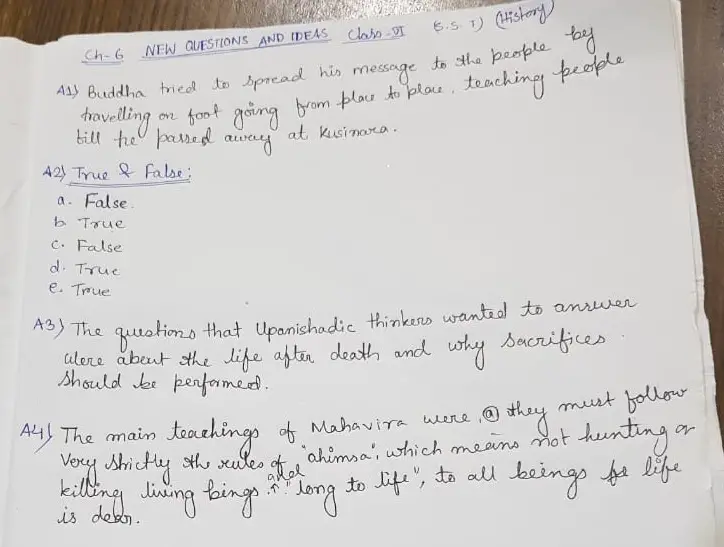 Ch-6 NEW QUESTIONS AND IDEAS Class-VI (S.S.T) (History)
A1) Buddha tried to spread his message to the people by
travelling on foot going from place to place, teaching people
till he passed away at Kusinara.
A2) True & False:
a. False.
b. True
c. False
d. True
e. True
A3) The questions that Upanishadic thinkers wanted to answer
were about the life after death and why sacrifices
should be performed.
A4) The main teachings of Mahavira were, @ they must follow
very strictly the rules of "ahimsa", which means not hunting or
killing living beings and "long to life", to all beings life
is dear.